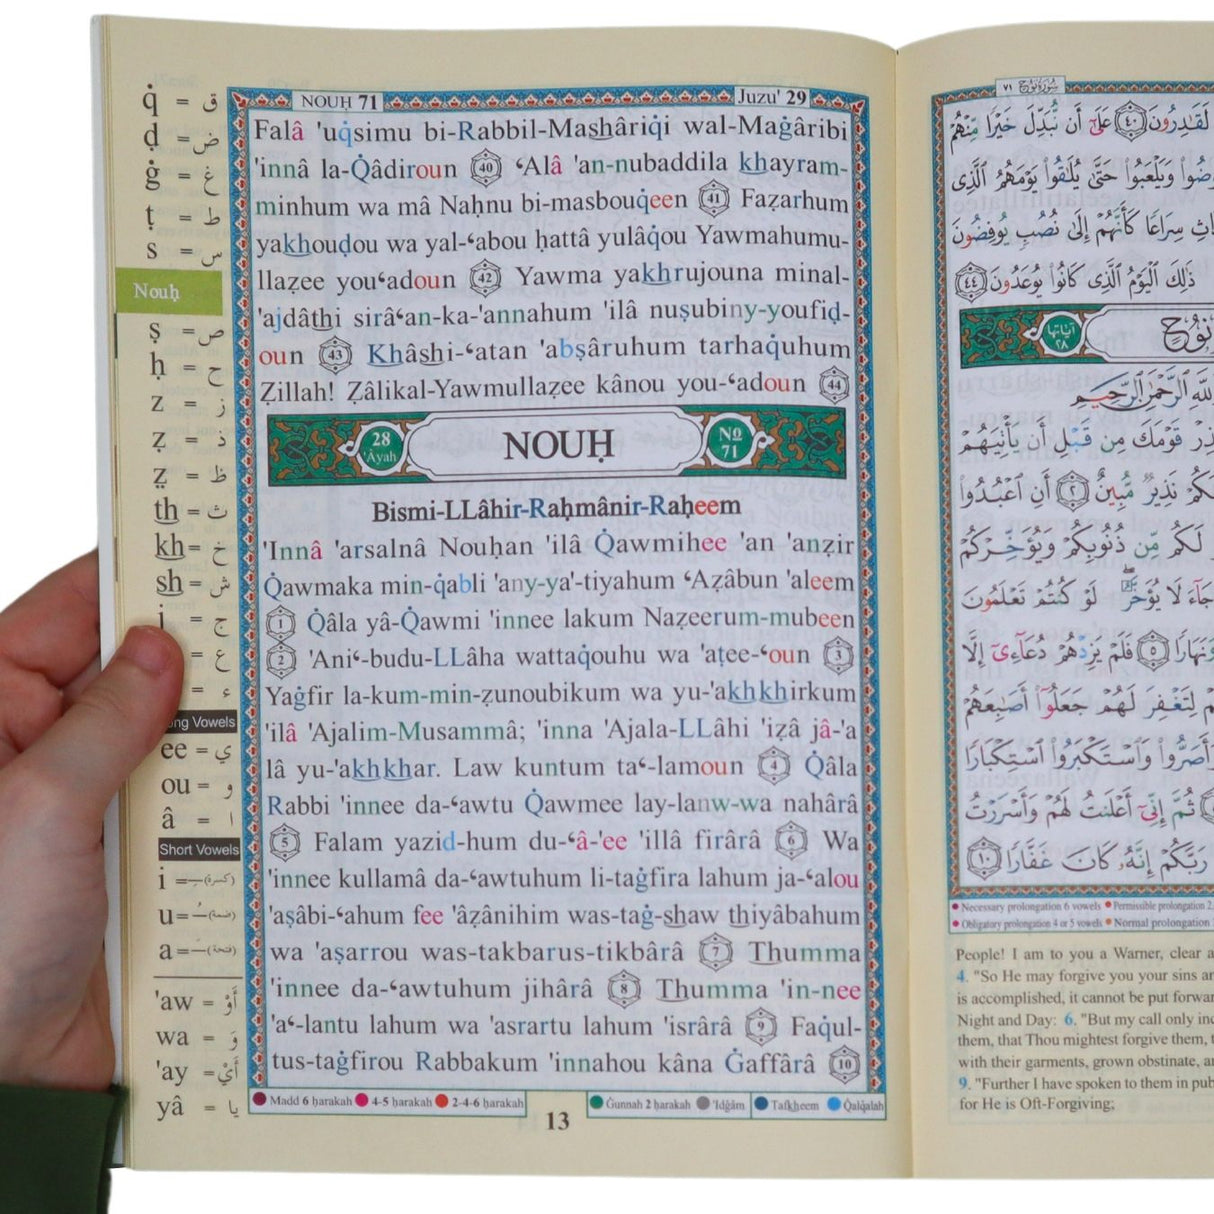 q̇ = ق
ḍ = ض
ġ = غ
ṭ = ط
s = س
Nouḥ
ṣ = ص
ḥ = ح
z = ز
ẓ = ذ
ẓ̤ = ظ
th = ث
kh = خ
sh = ش
j = ج
= ع
= ء
ng Vowels
ee = ي
ou = و
â = ا
Short Vowels
i = (كسرة)
u = (ضمة)
a = (فتحة)
'aw = أَوْ
wa = وَ
'ay = أَيْ
yâ = يا
NOUḤ 71
Juzu' 29
Falâ 'uq̇simu bi-Rabbil-Mashâriq̇i wal-Maġâribi
'innâ la-Q̇âdiroun 40 ʿAlâ 'an-nubaddila khayram-
minhum wa mâ Naḥnu bi-masbouq̇een 41 Faẓarhum
yakhouḍou wa yal-ʿabou ḥattâ yulâq̇ou Yawmahumu-
llaẓee youʿadoun 42 Yawma yakhrujouna minal-
'ajdâthi sirâʿan-ka-'annahum 'ilâ nuṣubiny-youfiḍ-
oun 43 Khâshi-ʿatan 'abṣâruhum tarhaq̇uhum
Ẓillah! Ẓâlikal-Yawmullaẓee kânou you-ʿadoun 44
28 'Âyah
NOUḤ
No 71
Bismi-LLâhir-Raḥmânir-Raḥeem
'Innâ 'arsalnâ Nouḥan 'ilâ Q̇awmihee 'an 'anẓir
Q̇awmaka min-q̇abli 'any-ya'-tiyahum ʿAẓâbun 'aleem
1 Q̇âla yâ-Q̇awmi 'innee lakum Naẓeerum-mubeen
2 'Aniʿ-budu-LLâha wattaq̇ouhu wa 'aṭee-ʿoun 3
Yaġfir la-kum-min-ẓunoubikum wa yu-'akhkhirkum
'ilâ 'Ajalim-Musammâ; 'inna 'Ajala-LLâhi 'iẓâ jâ-'a
lâ yu-'akhkhar. Law kuntum taʿ-lamoun 4 Q̇âla
Rabbi 'innee da-ʿawtu Q̇awmee lay-lanw-wa nahârâ
5 Falam yazid-hum du-ʿâ-'ee 'illâ firârâ 6 Wa
'innee kullamâ da-ʿawtuhum li-taġfira lahum ja-ʿalou
'aṣâbi-ʿahum fee 'âẓânihim was-taġ-shaw thiyâbahum
wa 'aṣarrou was-takbarus-tikbârâ 7 Thumma
'innee da-ʿawtuhum jihârâ 8 Thumma 'in-nee
'aʿ-lantu lahum wa 'asrartu lahum 'isrârâ 9 Faq̇ul-
tus-taġfirou Rabbakum 'innahou kâna Ġaffârâ 10
Madd 6 ḥarakah 4-5 ḥarakah 2-4-6 ḥarakah
Ġunnah 2 ḥarakah 'Idġâm Tafkheem Q̇alq̇alah
13
سورة نوح ٧١
لَقَٰدِرُونَ ٤٠ عَلَىٰٓ أَن نُّبَدِّلَ خَيْرًا مِّنْهُمْ
وَيَلْعَبُوا۟ حَتَّىٰ يُلَٰقُوا۟ يَوْمَهُمُ ٱلَّذِى
سِرَاعًا كَأَنَّهُمْ إِلَىٰ نُصُبٍ يُوفِضُونَ
ذَٰلِكَ ٱلْيَوْمُ ٱلَّذِى كَانُوا۟ يُوعَدُونَ ٤٤
آياتها ٢٨
نُوح
ٱللَّهِ ٱلرَّحْمَٰنِ ٱلرَّحِيمِ
قَوْمَكَ مِن قَبْلِ أَن يَأْتِيَهُمْ
نَذِيرٌ مُّبِينٌ ٢ أَنِ ٱعْبُدُوا۟
لَكُم مِّن ذُنُوبِكُمْ وَيُؤَخِّرْكُمْ
جَآءَ لَا يُؤَخَّرُ لَوْ كُنتُمْ تَعْلَمُونَ
وَنَهَارًا ٥ فَلَمْ يَزِدْهُمْ دُعَآءِىٓ إِلَّا
لِتَغْفِرَ لَهُمْ جَعَلُوٓا۟ أَصَٰبِعَهُمْ
وَأَصَرُّوا۟ وَٱسْتَكْبَرُوا۟ ٱسْتِكْبَارًا
ثُمَّ إِنِّىٓ أَعْلَنتُ لَهُمْ وَأَسْرَرْتُ
رَبَّكُمْ إِنَّهُۥ كَانَ غَفَّارًا ١٠
Necessary prolongation 6 vowels Permissible prolongation 2,
Obligatory prolongation 4 or 5 vowels Normal prolongation
People! I am to you a Warner, clear a
4. "So He may forgive you your sins an
is accomplished, it cannot be put forwar
Night and Day: 6. "But my call only inc
them, that Thou mightest forgive them, t
with their garments, grown obstinate, an
9. "Further I have spoken to them in pub
for He is Oft-Forgiving;